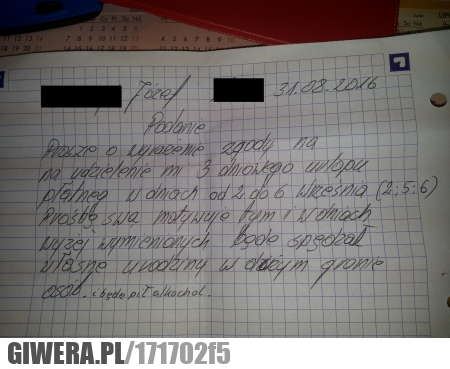 Józef 31.08.2016
Podanie
Proszę o wyrażenie zgody na
na udzielenie mi 3 dniowego urlopu
płatneg w dniach od 2 do 6 września (2;5;6)
Prośbę swą motywuję tym i w dniach
wyżej wymienionych będę spędzał
własne urodziny w dużym gronie
osób. i będę pił alkohol.
GIWERA.PL/171702f5